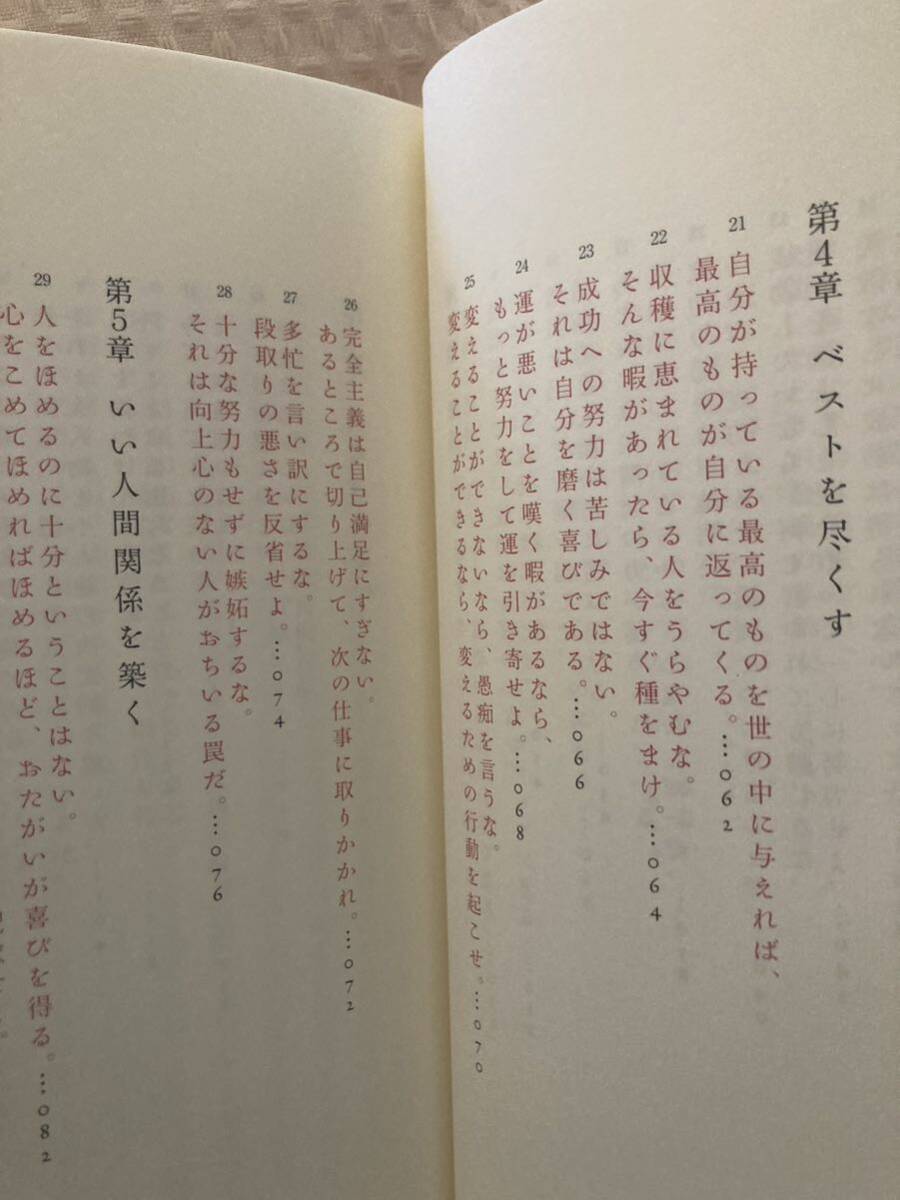 第4章 ベストを尽くす
21
自分が持っている最高のものを世の中に与えれば、
最高のものが自分に返ってくる。…062
22
収穫に恵まれている人をうらやむな。
そんな暇があったら、今すぐ種をまけ。…064
23
成功への努力は苦しみではない。
それは自分を磨く喜びである。…066
24
運が悪いことを嘆く暇があるなら、
もっと努力をして運を引き寄せよ。…068
25
変えることができないなら、愚痴を言うな。
変えることができるなら、変えるための行動を起こせ。…070
26
完全主義は自己満足にすぎない。
あるところで切り上げて、次の仕事に取りかかれ。…072
27
多忙を言い訳にするな。
段取りの悪さを反省せよ。…074
28
十分な努力もせずに嫉妬するな。
それは向上心のない人がおちいる罠だ。…076
第5章 いい人間関係を築く
29
人をほめるのに十分ということはない。
心をこめてほめればほめるほど、おたがいが喜びを得る。…082